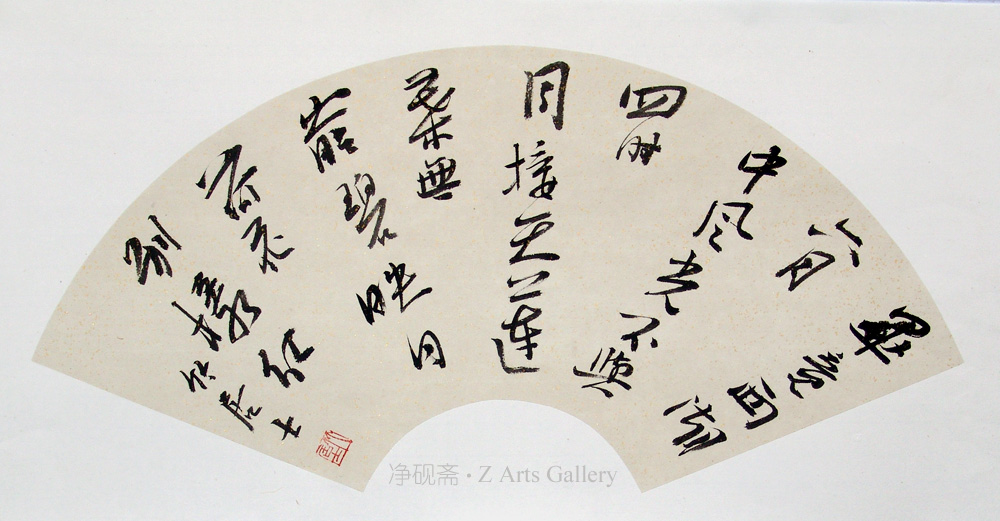 畢竟西湖
六月
中风光不與
四时
同接天蓮
葉無
窮碧映日
荷花
别樣红
居士
净砚斋 · Z Arts Gallery